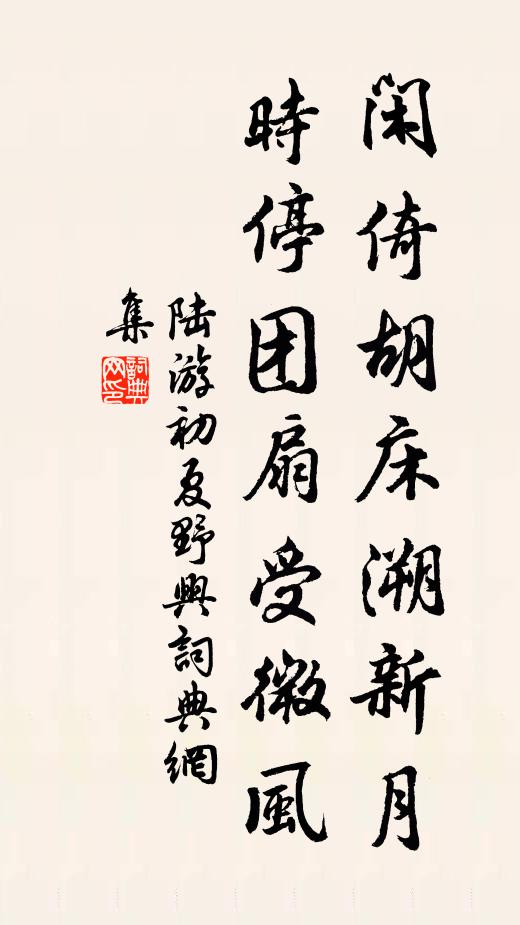 闲倚胡床溯新月
時停团扇受微風
陆游初夏野興詞典網
集
詞典
网印